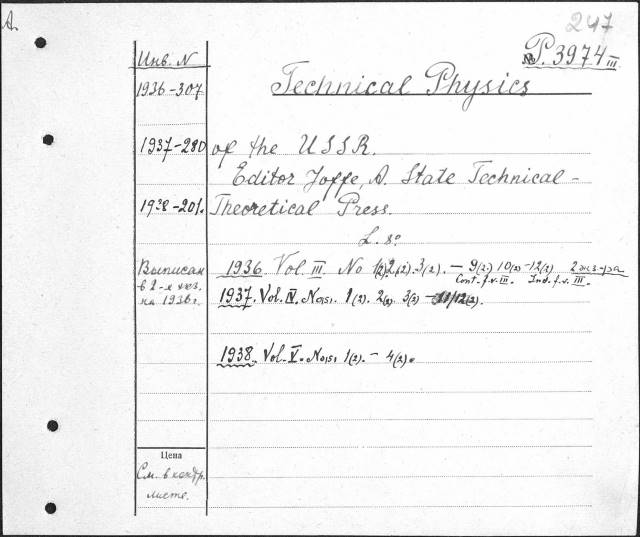 A.
247
Инв. N
№ P. 3974 III
1936-307
Technical Physics
1937-280
of the USSR.
Editor Joffe, A. State Technical-
1938-201.
Theoretical Press.
L. 8°
Выписан
в 2-х экз.
на 1936 г.
1936. Vol. III. No 1(2) 2(2). 3(2). – 9(2) 10(2) –12(2) 2 экз-ра
Cont. f. v. III. Ind. f. v. III.
1937. Vol. IV. No(s). 1(2). 2(2) 3(2) – 11/12(2).
1938. Vol. V. No(s). 1(2). – 4(2).
Цена
См. в контр.
листе.